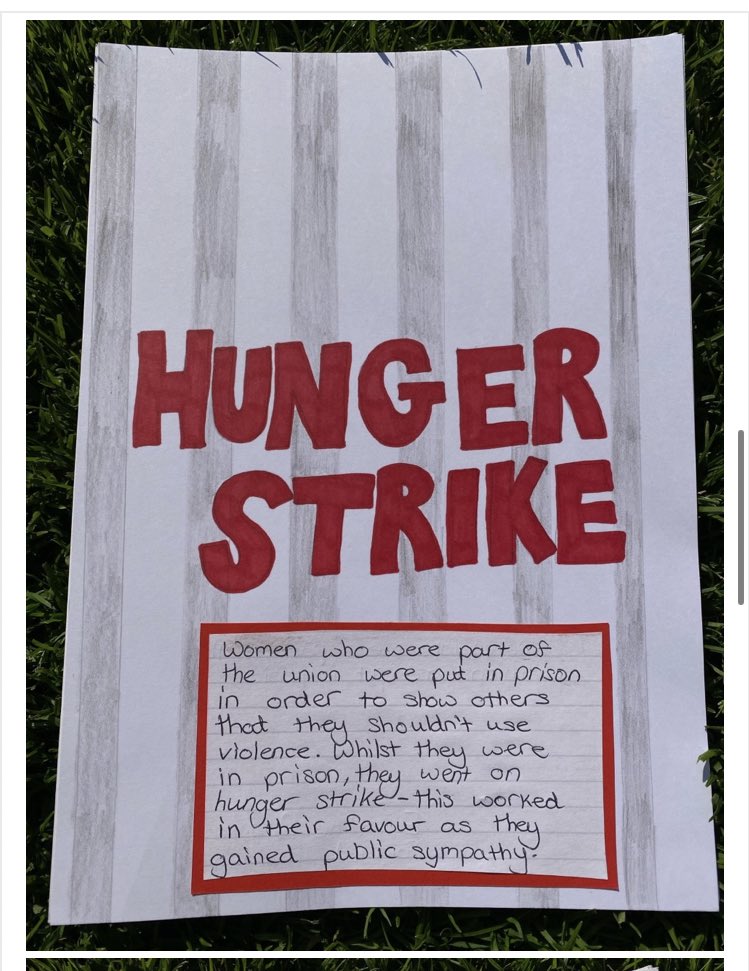 HUNGER
STRIKE
Women who were part of
the union were put in prison
in order to show others
that they shouldn't use
violence. Whilst they were
in prison, they went on
hunger strike - this worked
in their favour as they
gained public sympathy.